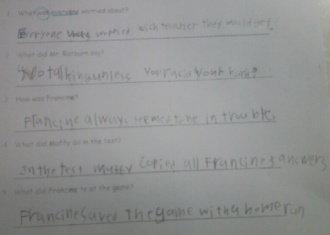 1. What was everyone worried about?
Everyone was worried with teacher they would get.
2. What did Mr. Ratburn say?
"No talking unless you raise your hand"
3. How was Francine?
Francine always seemed to be in trouble
4. What did Muffy do in the test?
In the test muffy copied all Francine's answers
5. What did Francine do at the game?
Francine saved the game with a home run